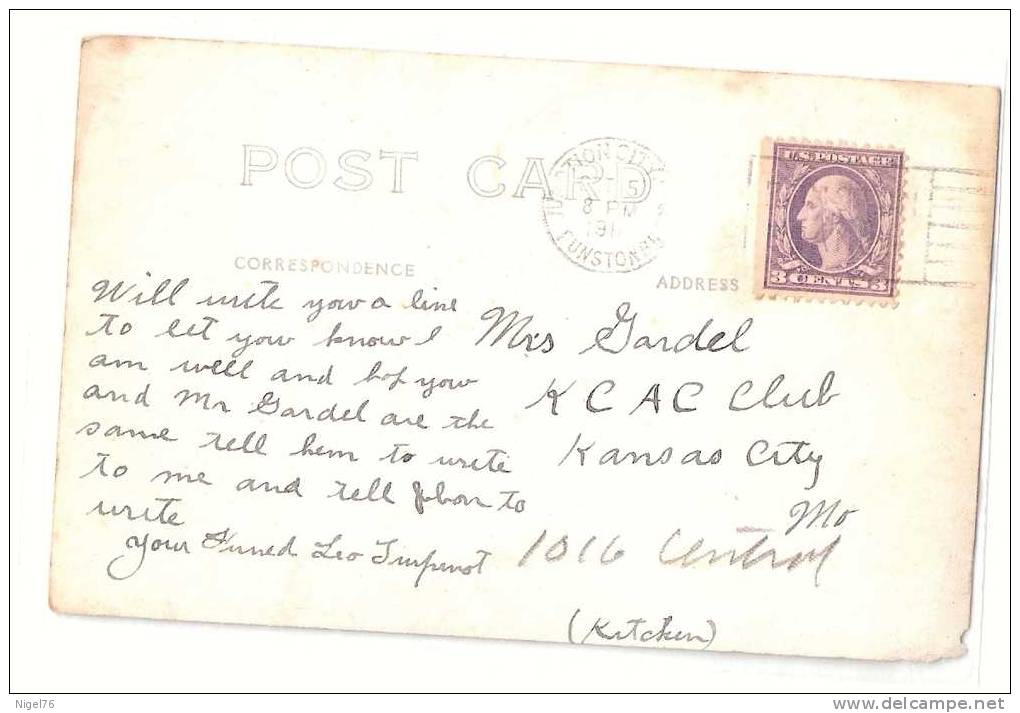 POST CARD
JUNCTION CITY
5
8 PM
191
FUNSTON BR
U.S. POSTAGE
3 CENTS 3
CORRESPONDENCE
ADDRESS
Will write you a line
to let you know I
am well and hop you
and Mr Gardel are the
same tell hem to write
to me and tell to
write
your Leo
Mrs Gardel
K C A C Club
Kansas City
Mo
1016 Central
(Kitchen)
Nigel76
www.delcampe.net